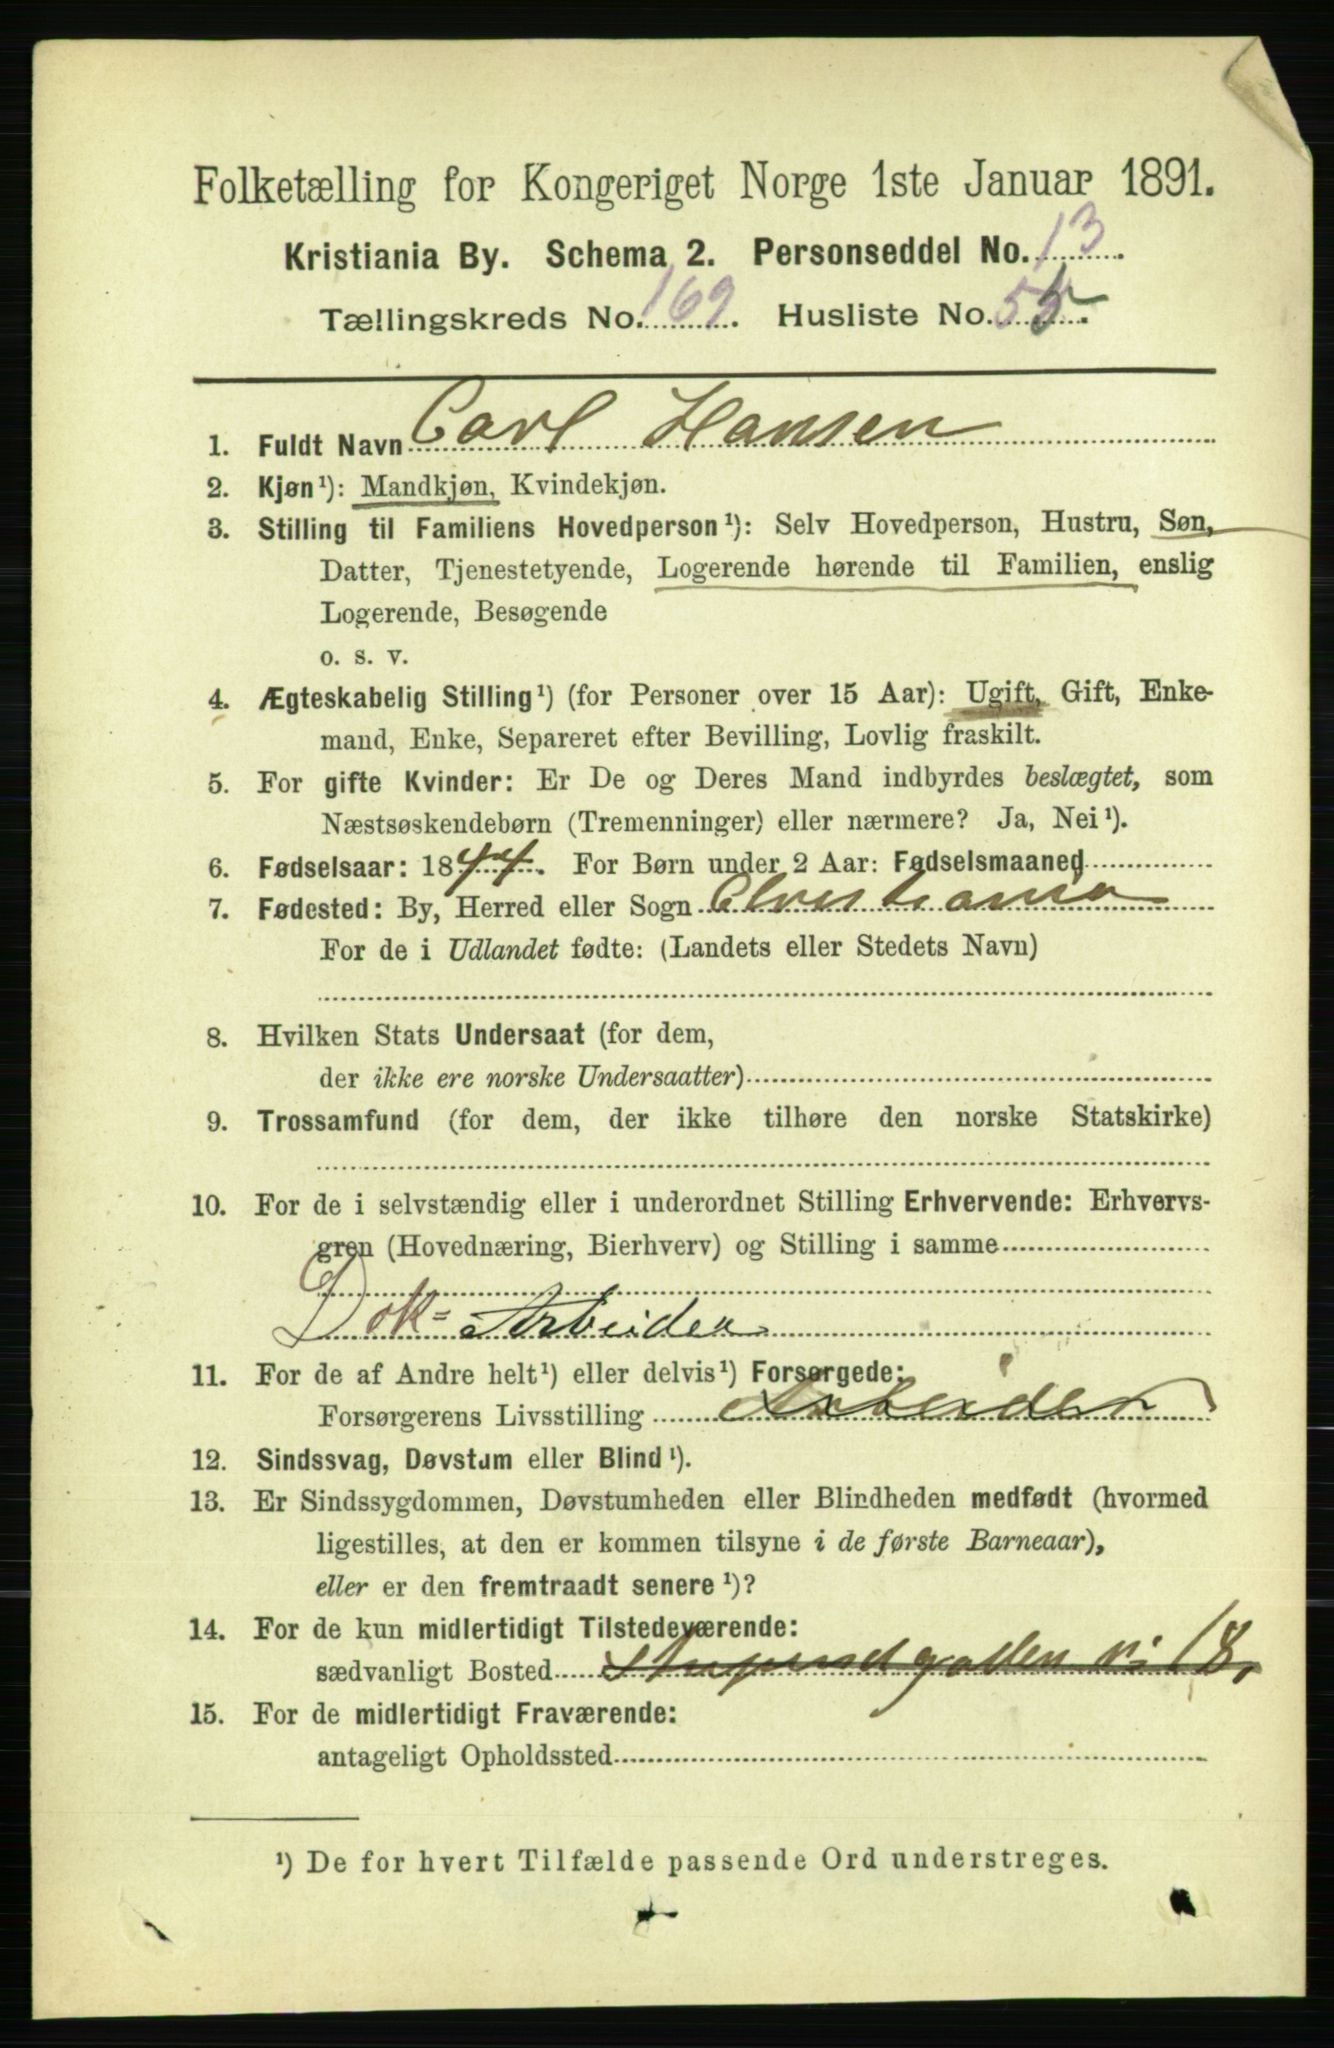 Folketælling for Kongeriget Norge 1ste Januar 1891.
Kristiania By. Schema 2. Personseddel No. 13.
Tællingskreds No. 169. Husliste No. 55.
1. Fuldt Navn Carl Hansen
2. Kjøn¹): Mandkjøn, Kvindekjøn.
3. Stilling til Familiens Hovedperson¹): Selv Hovedperson, Hustru, Søn,
Datter, Tjenestetyende, Logerende hørende til Familien, enslig
Logerende, Besøgende
o. s. v.
4. Ægteskabelig Stilling¹) (for Personer over 15 Aar): Ugift, Gift, Enke-
mand, Enke, Separeret efter Bevilling, Lovlig fraskilt.
5. For gifte Kvinder: Er De og Deres Mand indbyrdes beslægtet, som
Næstsøskendebørn (Tremenninger) eller nærmere? Ja, Nei¹).
6. Fødselsaar: 1844. For Børn under 2 Aar: Fødselsmaaned
7. Fødested: By, Herred eller Sogn Christiania
For de i Udlandet fødte: (Landets eller Stedets Navn)
8. Hvilken Stats Undersaat (for dem,
der ikke ere norske Undersaatter)
9. Trossamfund (for dem, der ikke tilhøre den norske Statskirke)
10. For de i selvstændig eller i underordnet Stilling Erhvervende: Erhvervs-
gren (Hovednæring, Bierhverv) og Stilling i samme
Dok= Arbeider
11. For de af Andre helt¹) eller delvis¹) Forsørgede:
Forsørgerens Livsstilling Arbeider
12. Sindssvag, Døvstum eller Blind¹).
13. Er Sindssygdommen, Døvstumheden eller Blindheden medfødt (hvormed
ligestilles, at den er kommen tilsyne i de første Barneaar),
eller er den fremtraadt senere¹)?
14. For de kun midlertidigt Tilstedeværende:
sædvanligt Bosted 18,
15. For de midlertidigt Fraværende:
antageligt Opholdssted
¹) De for hvert Tilfælde passende Ord understreges.